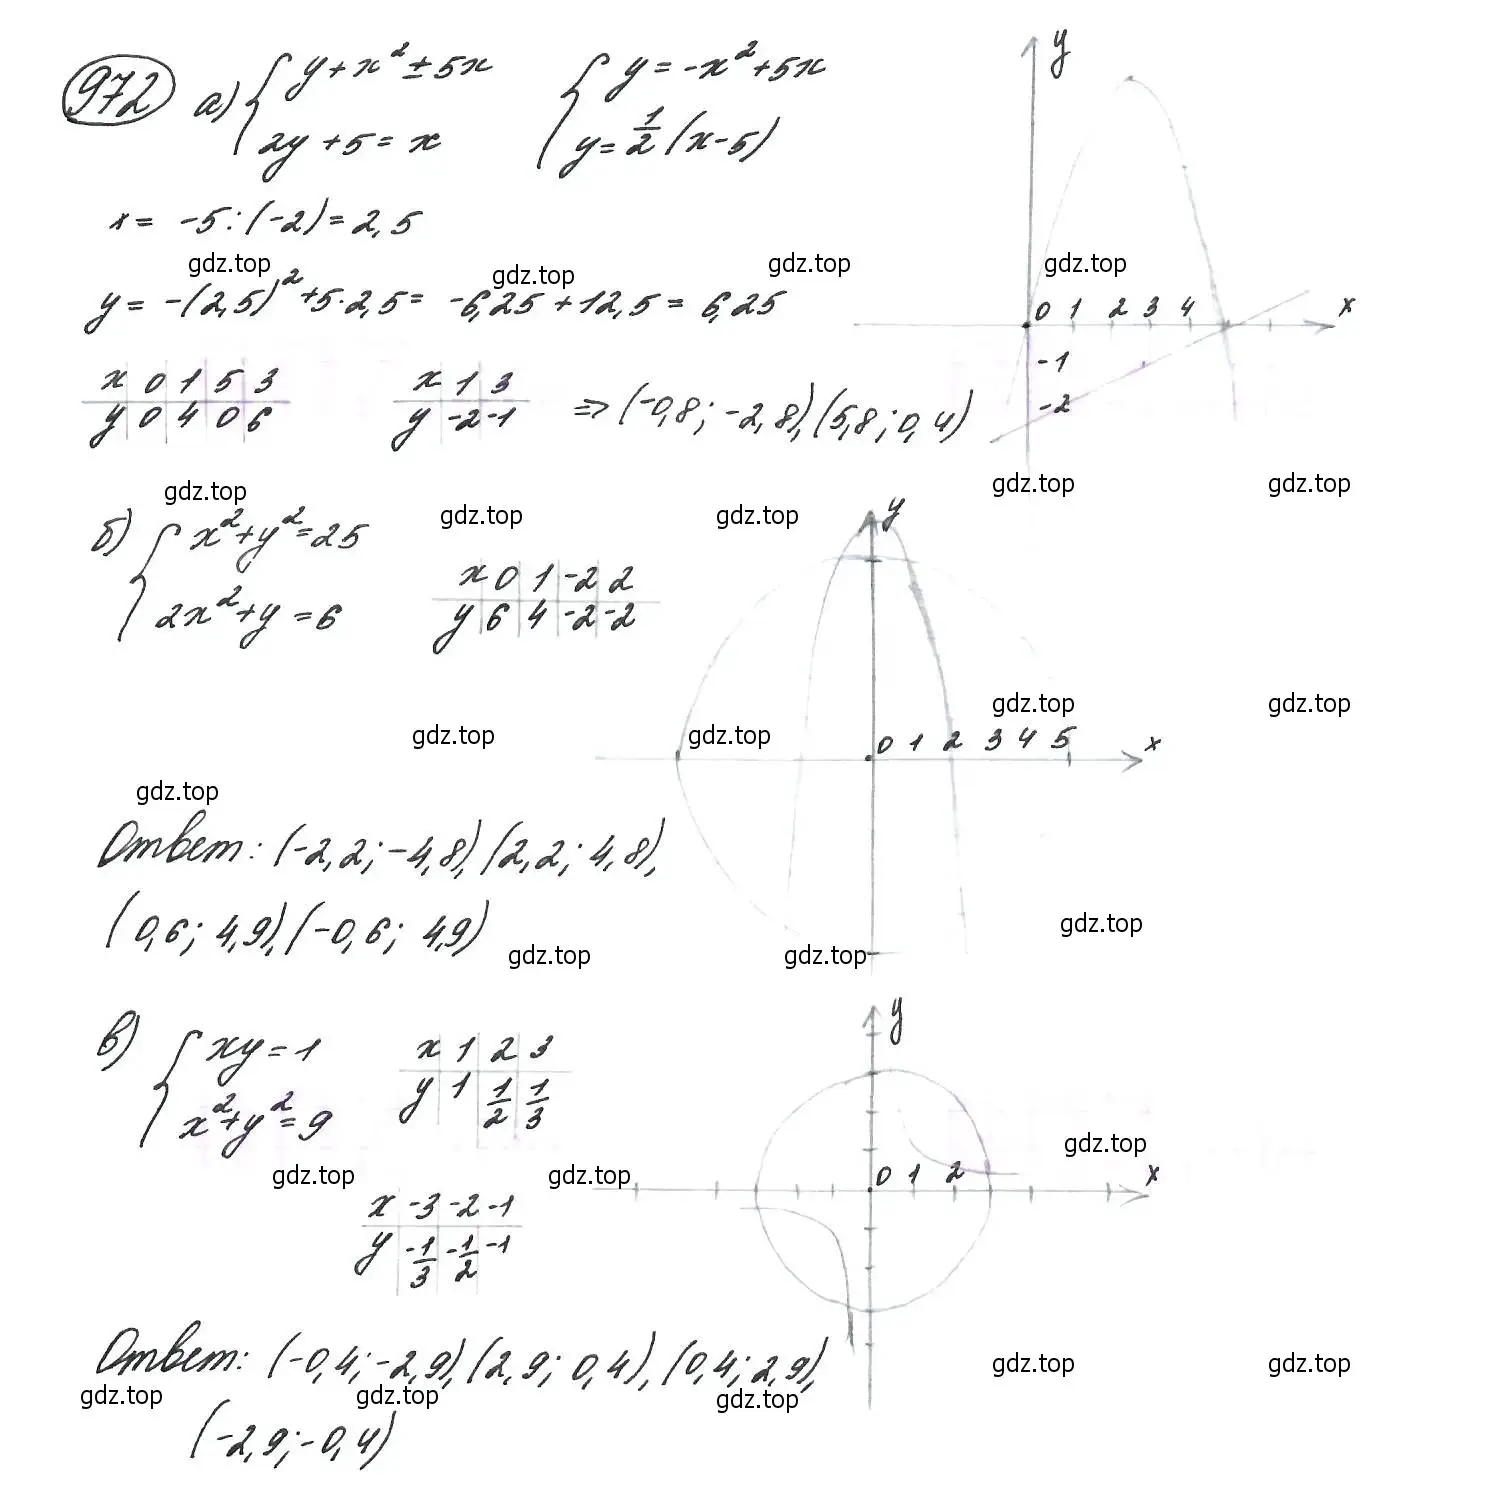 972 а) { y + x² ± 5x { y = -x² + 5x y
2y + 5 = x y = 1/2 (x - 5)
x = -5 : (-2) = 2,5
gdz.top gdz.top gdz.top gdz.top
y = -(2,5)² + 5 · 2,5 = -6,25 + 12,5 = 6,25 0 1 2 3 4 x
x 0 1 5 3 x 1 3 -1
y 0 4 0 6 y -2 -1 => (-0,8; -2,8), (5,8; 0,4) -2
gdz.top gdz.top gdz.top
gdz.top gdz.top y
б) { x² + y² = 25
2x² + y = 6
x 0 1 -2 2
y 6 4 -2 -2
gdz.top gdz.top
gdz.top gdz.top 0 1 2 3 4 5 x
gdz.top
Ответ: (-2,2; -4,8), (2,2; 4,8),
(0,6; 4,9), (-0,6; 4,9)
gdz.top
gdz.top gdz.top
в) { xy = 1 y
x² + y² = 9
x 1 2 3
y 1 1/2 1/3
gdz.top
gdz.top gdz.top 0 1 2 x
x -3 -2 -1
y -1/3 -1/2 -1
Ответ: (-0,4; -2,9), (2,9; 0,4), (0,4; 2,9),
gdz.top gdz.top
gdz.top gdz.top gdz.top
(-2,9; -0,4)